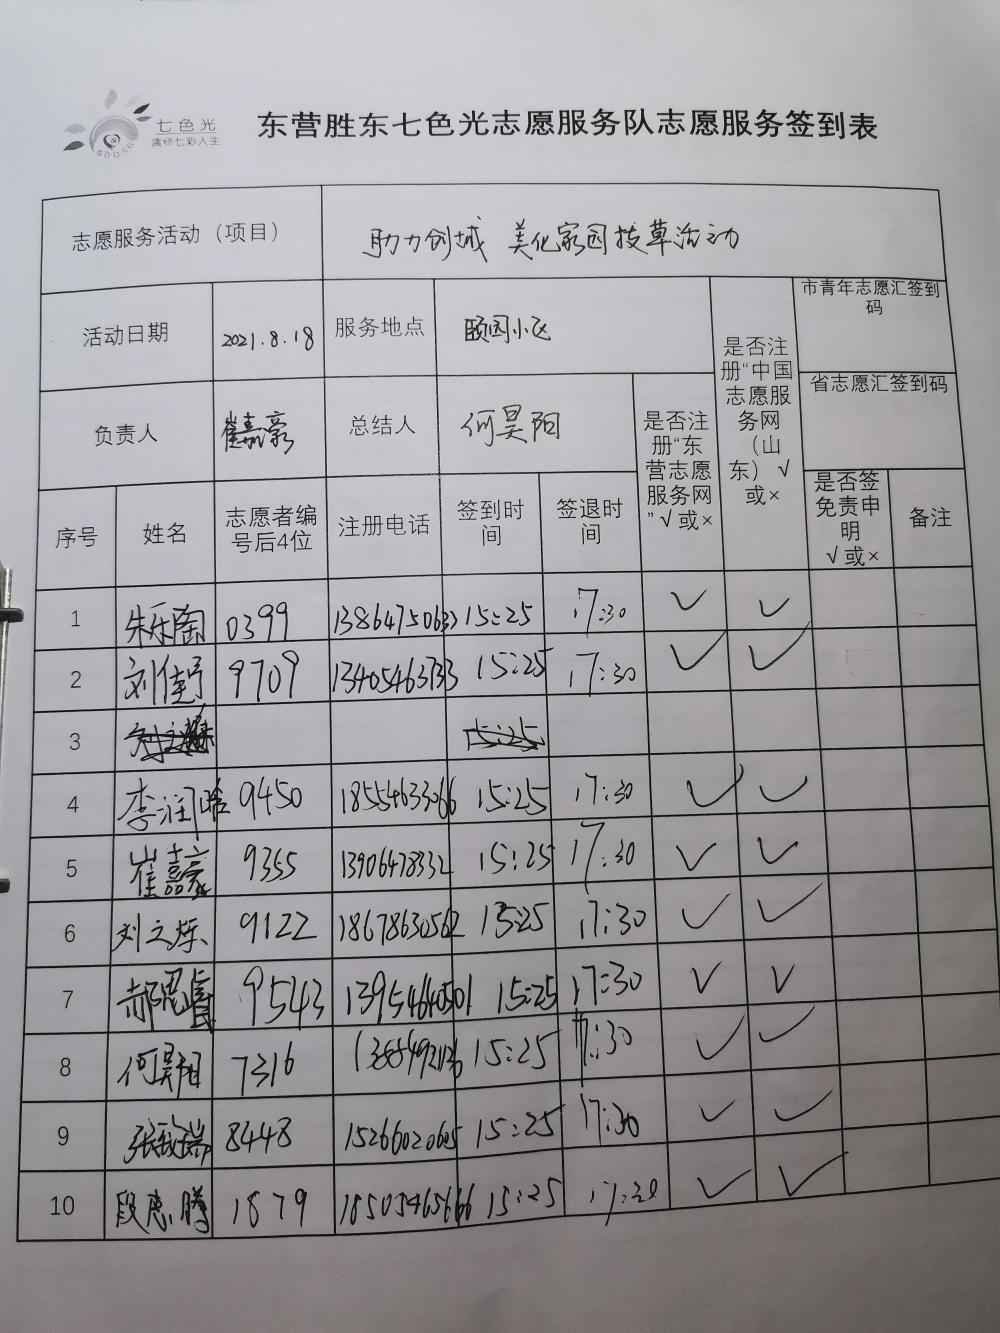 七色光
演绎七彩人生
SDQSG
东营胜东七色光志愿服务队志愿服务签到表
志愿服务活动（项目） 助力创城 美化家园拔草活动
活动日期 2021.8.18 服务地点 颐园小区
市青年志愿汇签到码
省志愿汇签到码
负责人 崔嘉豪 总结人 何昊阳
是否注册“东营志愿服务网”√或×
是否注册“中国志愿服务网（山东）√或×
序号 姓名 志愿者编号后4位 注册电话 签到时间 签退时间 是否签免责申明√或× 备注
1 朱乐陶 0399 15:25 17:30 ✓ ✓
2 刘佳 9709 15:25 17:30 ✓ ✓
3
4 李润晗 9450 18554633066 15:25 17:30 ✓ ✓
5 崔嘉豪 9355 13906478332 15:25 17:30 ✓ ✓
6 刘之烁 9122 18678630562 15:25 17:30 ✓ ✓
7 郝思 9543 15:25 17:30 ✓ ✓
8 何昊阳 7316 15:25 17:30 ✓ ✓
9 张瑞 8448 15266020605 15:25 17:30 ✓ ✓
10 段惠腾 1879 18505465666 15:25 17:30 ✓ ✓